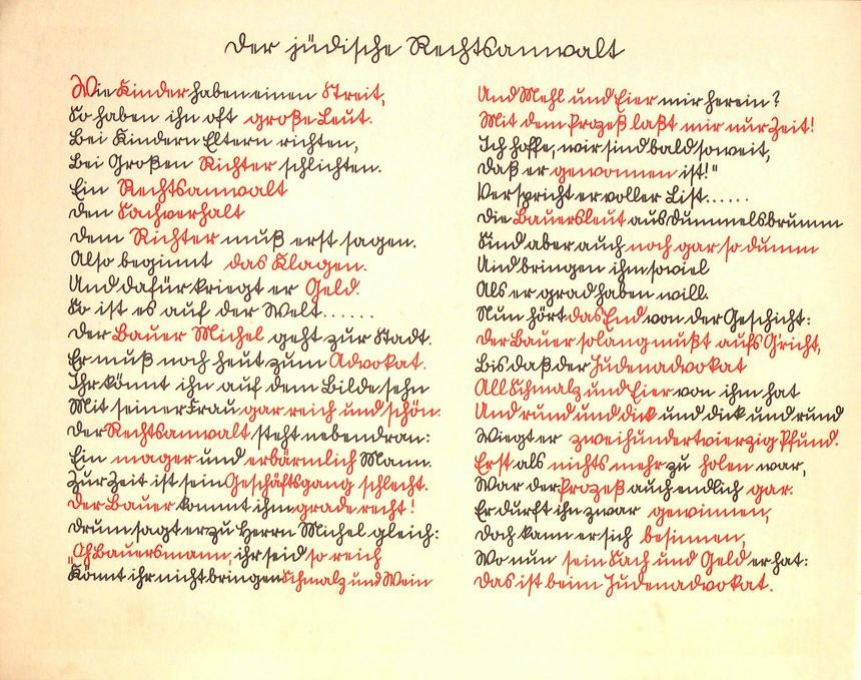 Der jüdische Rechtsanwalt
Wie Kinder haben einen Streit,
So haben ihn oft große Leut.
Bei Kindern Eltern richten,
Bei Großen Richter schlichten.
Ein Rechtsanwalt
Den Sachverhalt
Dem Richter muß erst sagen.
Also beginnt das Klagen.
Und dafür kriegt er Geld.
So ist es auf der Welt......
Der Bauer Michel geht zur Stadt.
Er muß noch heut zum Advokat.
Ihr könnt ihn auf dem Bilde sehn
Mit seiner Frau gar reich und schön.
Der Rechtsanwalt steht nebendran:
Ein mager und erbärmlich Mann.
Zur Zeit ist sein Geschäftsgang schlecht.
Der Bauer kommt ihm grade recht!
Drum sagt er zu Herrn Michel gleich:
„Oh Bauersmann, ihr seid so reich
Könnt ihr nicht bringen Schmalz und Wein
Und Mehl und Eier mir herein?
Mit dem Prozeß laßt mir nur Zeit!
Ich hoffe, wir sind bald soweit,
Daß er gewonnen ist!"
Verspricht er voller List......
Die Bauersleut aus Dummelsbrumm
Sind aber auch noch gar so dumm
Und bringen ihm soviel
Als er grad haben will.
Nun hört das End von der Geschicht:
Der Bauer solang mußt aufs G'richt,
Bis daß der Judenadvokat
All Schmalz und Eier von ihm hat
Und rund und dick und dick und rund
Wiegt er zweihundertvierzig Pfund.
Erst als nichts mehr zu holen war,
War der Prozeß auch endlich gar.
Er durft ihn zwar gewinnen,
Doch kann er sich besinnen,
Wo nun sein Sach und Geld er hat:
Das ist beim Judenadvokat.